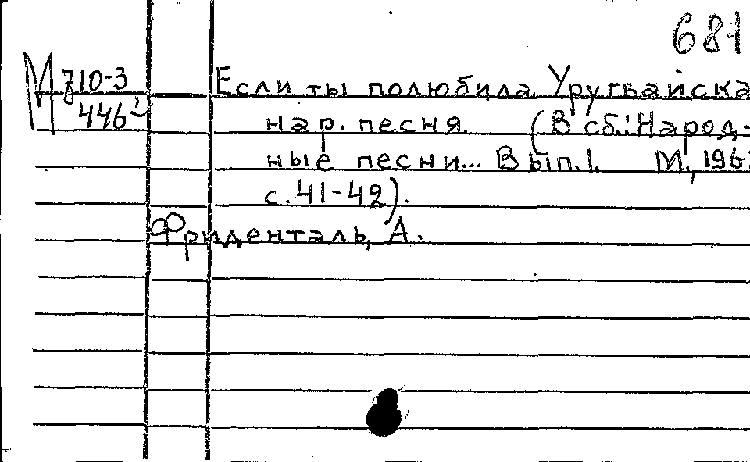 681
М 710-3 Если ты полюбила. Уругвайска
446 нар. песня. (В сб.: Народ-
ные песни... Вып. 1. М., 196
с. 41-42).
Фриденталь, А.